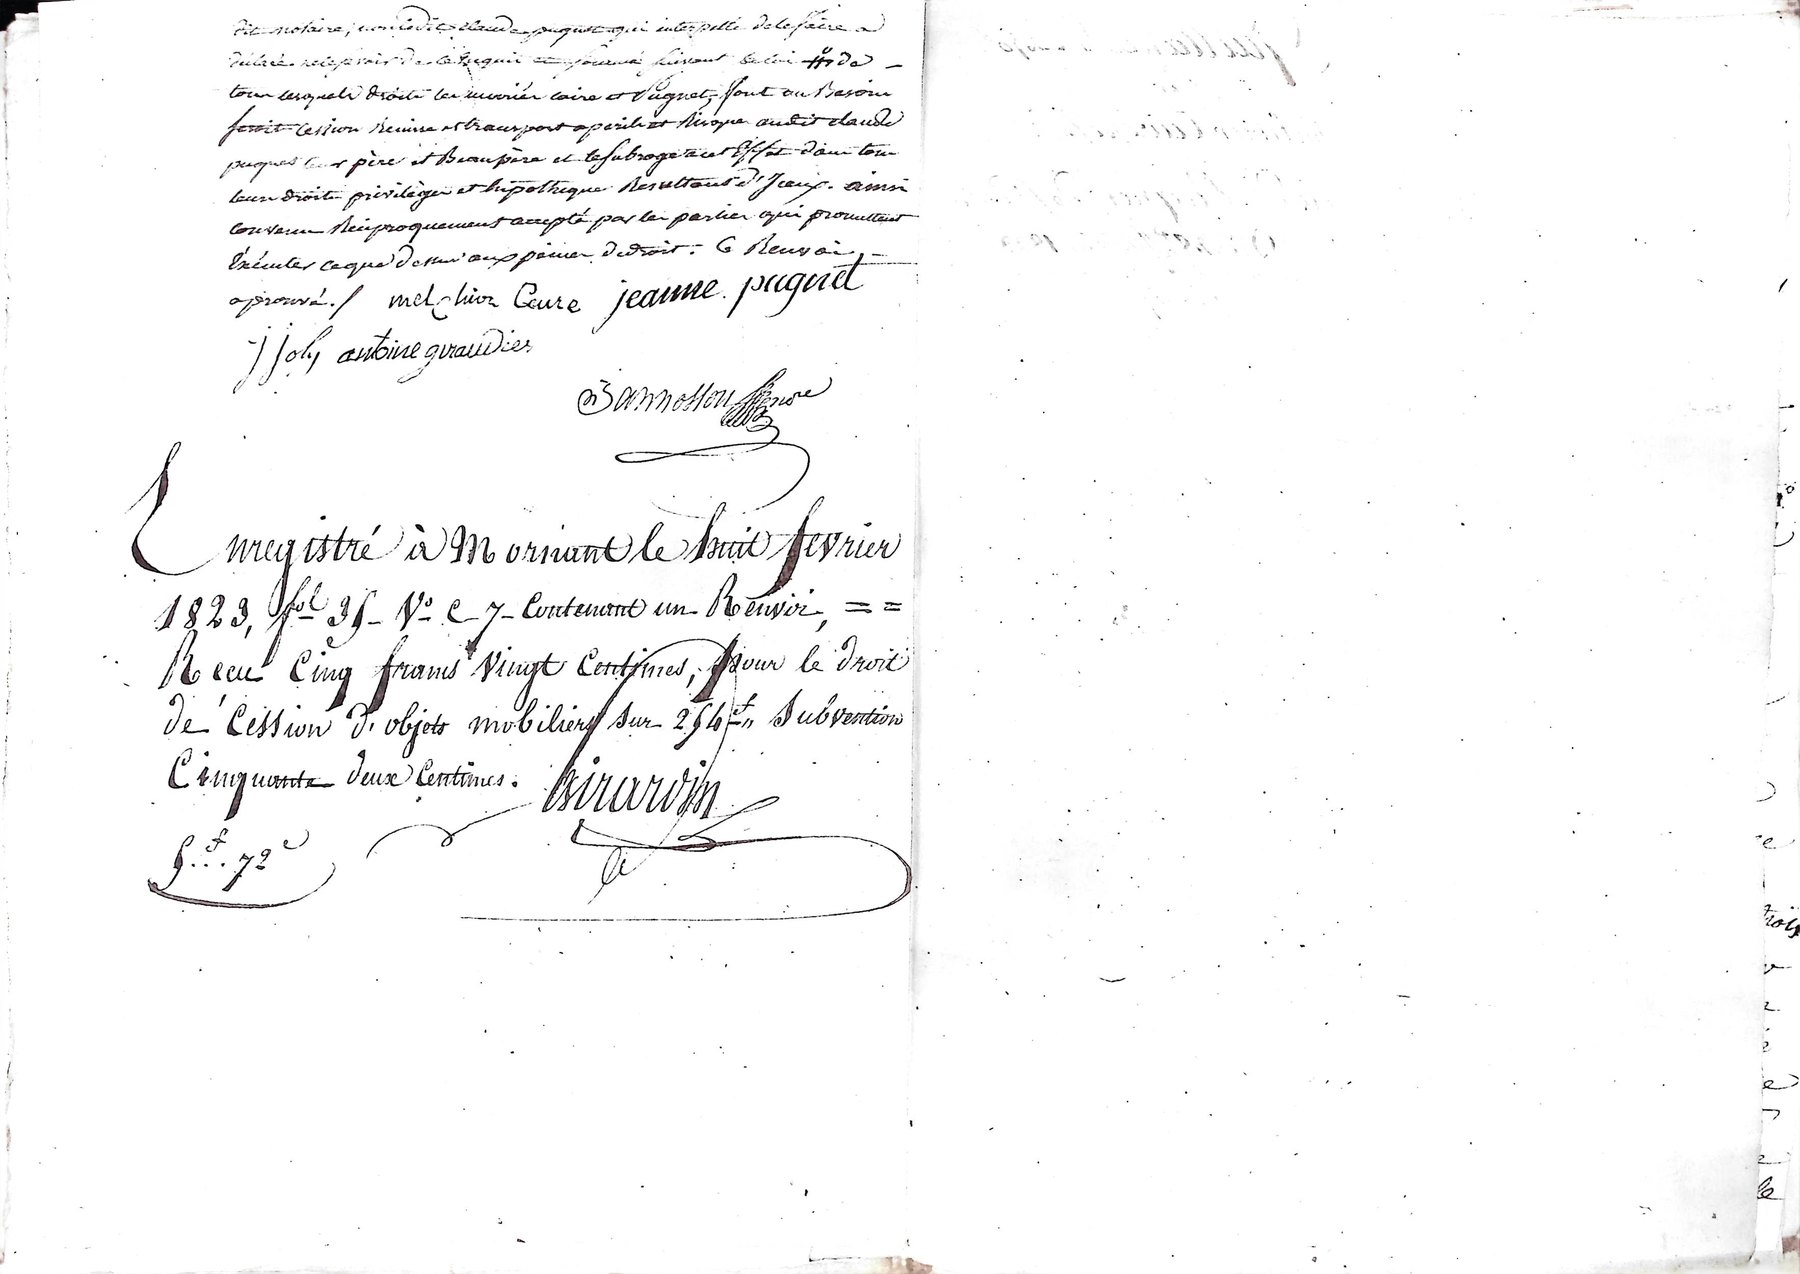 dit notaire, non ledit claude puguet qui interpellé de le faire a
déclaré ne le savoir de ce enquis suivant la loi # de
tous lesquels droits les mariés caire et Puguet, font au Besoin
cession Remise et transport a perils et Risques audit claude
puguet leur père et Beaupère et le subrogeant à cet Effet dans tous
leurs droits privilèges et hipothèques Resultants d'Iceux. ainsi
convenu Réciproquement accepté par les parties qui promettent
Exécuter ce que dessus aux peines de droit. Renvoi
aprouvé./ melchior Caire jeanne puguet
jjoly antoine giraudier
Enregistré à Mornant le huit fevrier
1823, fol 35 Vo C 7 Contenant un Renvoi, = =
Recu Cinq francs Vingt Centimes, pour le droit
de Cession d'objets mobiliers sur 254 f. Subvention
Cinquante deux Centimes. Girardin
5 f... 72 c
trois
le